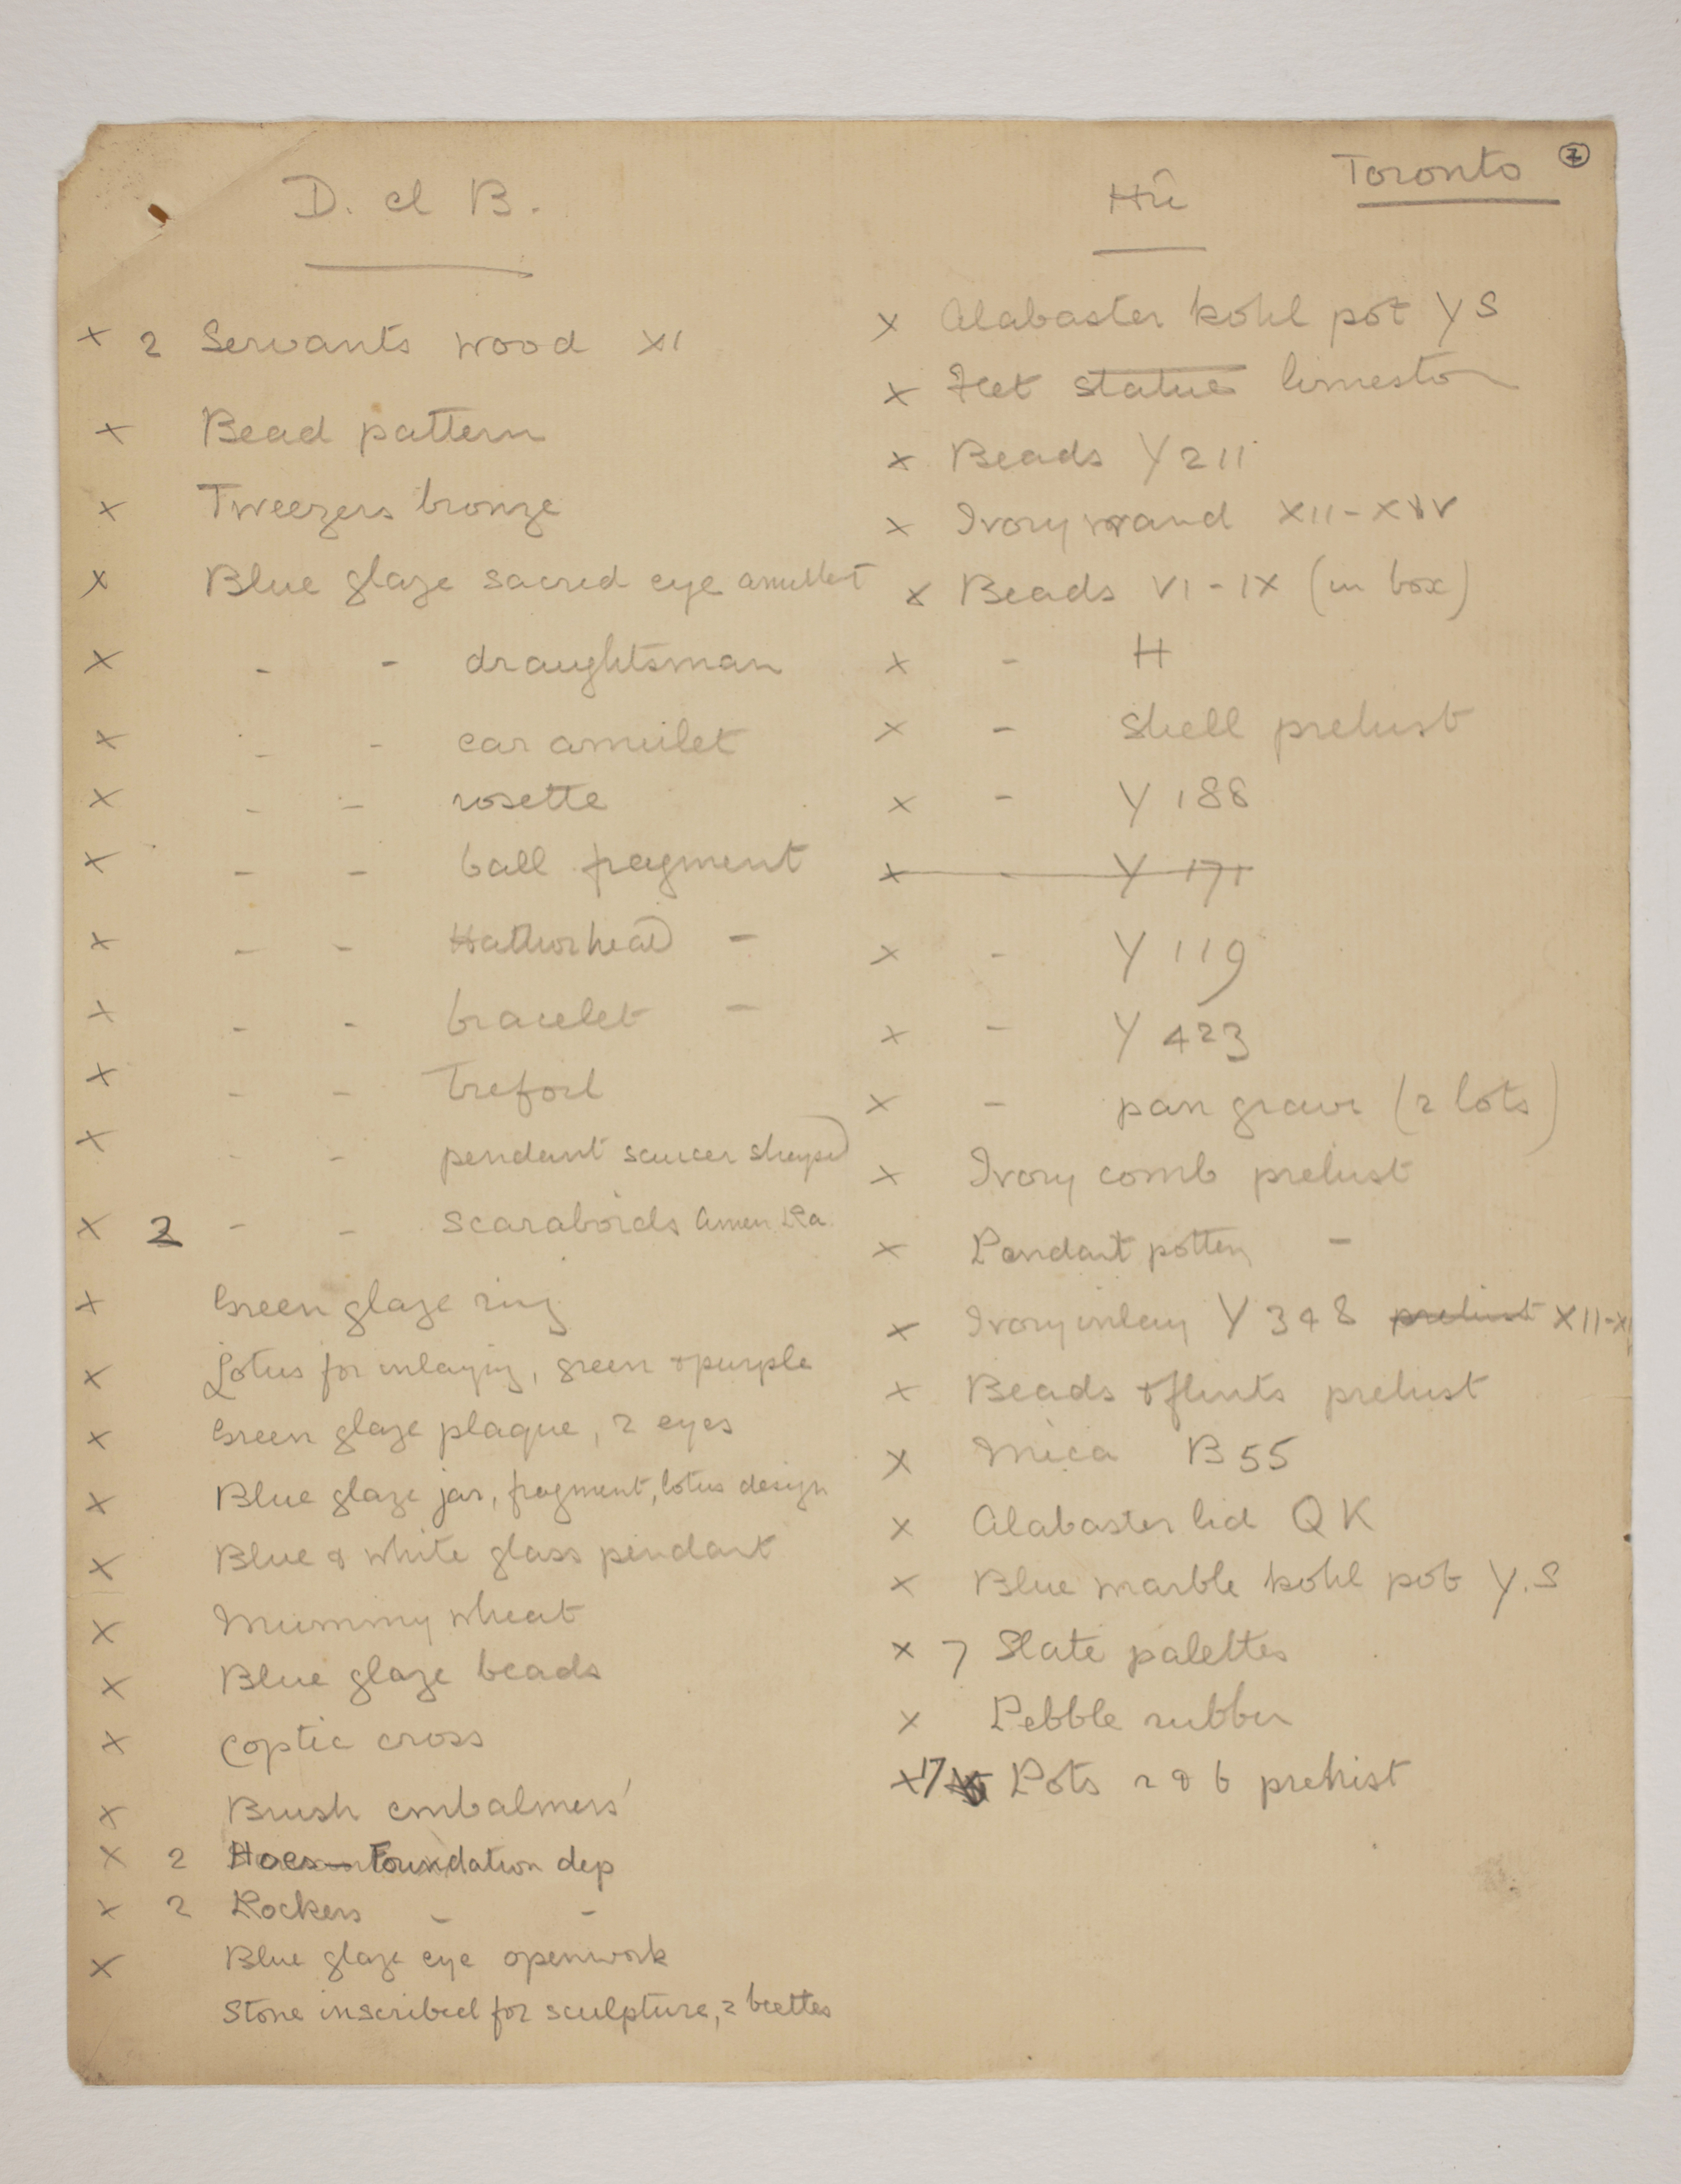 Toronto 7
D. el B.
× 2 Servants wood XI
× Bead pattern
× Tweezers bronze
× Blue glaze sacred eye amulet
× - - draughtsman
× - - ear amulet
× - - rosette
× - - ball fragment
× - - Hathor head -
× - - bracelet -
× - - trefoil
× - - pendant saucer shaped
× 2 - - scaraboids Amen Ra
× Green glaze ring
× Lotus for inlaying, green & purple
× Green glaze plaque, 2 eyes
× Blue glaze jar, fragment, lotus design
× Blue & white glass pendant
× Mummy wheat
× Blue glaze beads
× Coptic cross
× Brush embalmers'
× 2 Hoes — Foundation dep
× 2 Rockers - -
× Blue glaze eye openwork
Stone inscribed for sculpture, 2
Hû
× Alabaster kohl pot Y S
× Feet statue limeston
× Beads Y 211
× Ivory wand XII-
× Beads VI-IX (in box)
× - H
× - Shell prehist
× - Y 188
× - Y 171
× - Y 119
× - Y 423
× - pan grave (2 lots)
× Ivory comb prehist
× Pendant pottery -
× Ivory inlay Y 348 prehist XII-XI
× Beads & flints prehist
× Mica B 55
× Alabaster lid Q K
× Blue marble kohl pot Y.S
× 7 Slate palettes
× Pebble rubber
× 17 Pots 2 & 6 prehist